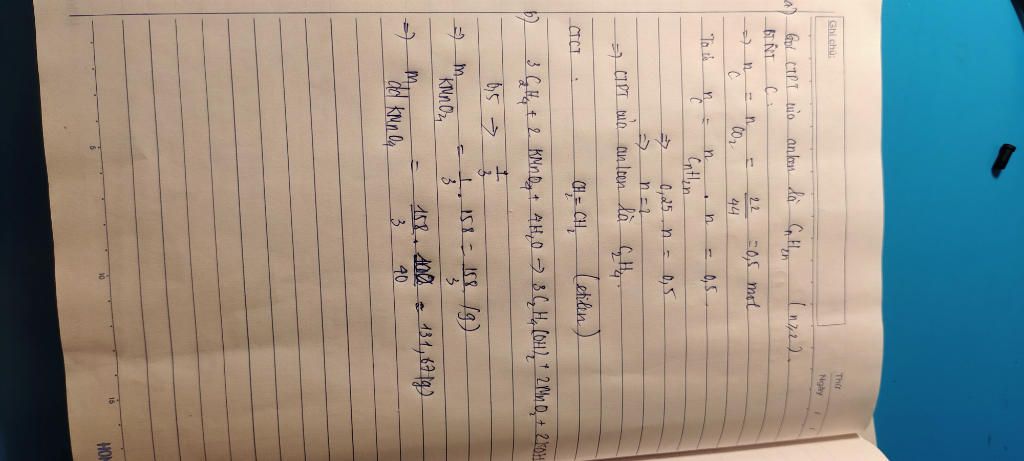 Ghi chú:
Thứ
Ngày
a) Gọi CTPT của anken là CnH2n (n ≥ 2).
BTNT C:
=> nC = nCO2 = 22/44 = 0,5 mol
Ta có nC = nCnH2n . n = 0,5.
=> 0,25 . n = 0,5
=> n = 2
=> CTPT của anken là C2H4.
CTCT : CH2 = CH2 (etilen)
b) 3C2H4 + 2 KMnO4 + 4H2O -> 3C2H4(OH)2 + 2MnO2 + 2KOH
0,5 -> 1/3
=> mKMnO4 = 1/3 . 158 = 158/3 (g)
=> mdd KMnO4 = 158/3 . 100/40 = 131,67 (g)
5 10 15